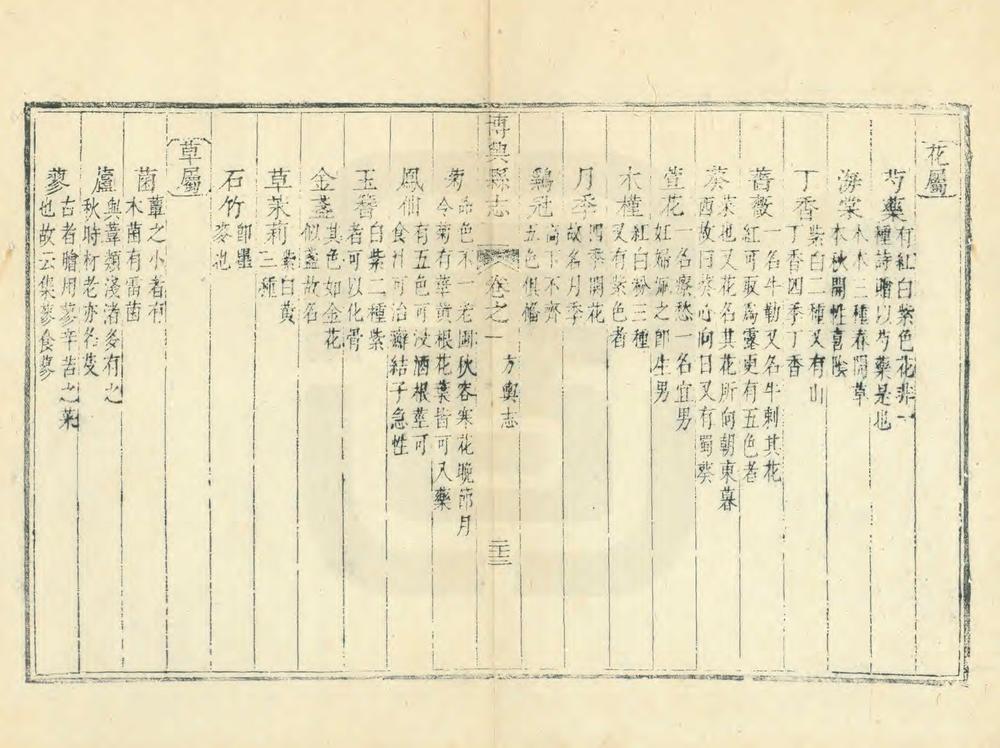 花屬
芍藥 有紅白紫色花非一
種詩贈以芍藥是也
海棠 木本三種春開草
本秋開性喜陰
丁香 紫白二種又有山
丁香四季丁香
薔薇 一名牛勒又名牛刺其花
紅可取為露更有五色者
葵 菜也又花名其花所向朝東暮
西故曰葵心向日又有蜀葵
萱花 一名療愁一名宜男
妊婦佩之即生男
木槿 紅白粉三種
又有紫色者
月季 四季開花
故名月季
鷄冠 高下不齊
五色俱備
博興縣志 卷之一 方輿志 二十三
菊 命色不一老圃秋容寒花晚節月
令菊有華黃根花葉皆可入藥
鳳仙 有五色可浸酒根莖可
食汁可治癬結子急性
玉簪 白紫二種紫
者可以化骨
金盞 其色如金花
似盞故名
草茉莉 紫白黃
三種
石竹 即瞿
麥也
草屬
菌 蕈之小者有
木菌有雷菌
蘆 與葦類淺渚多有之
秋時材老亦名茭
蓼 古者膾用蓼辛苦之菜
也故云集蓼食蓼